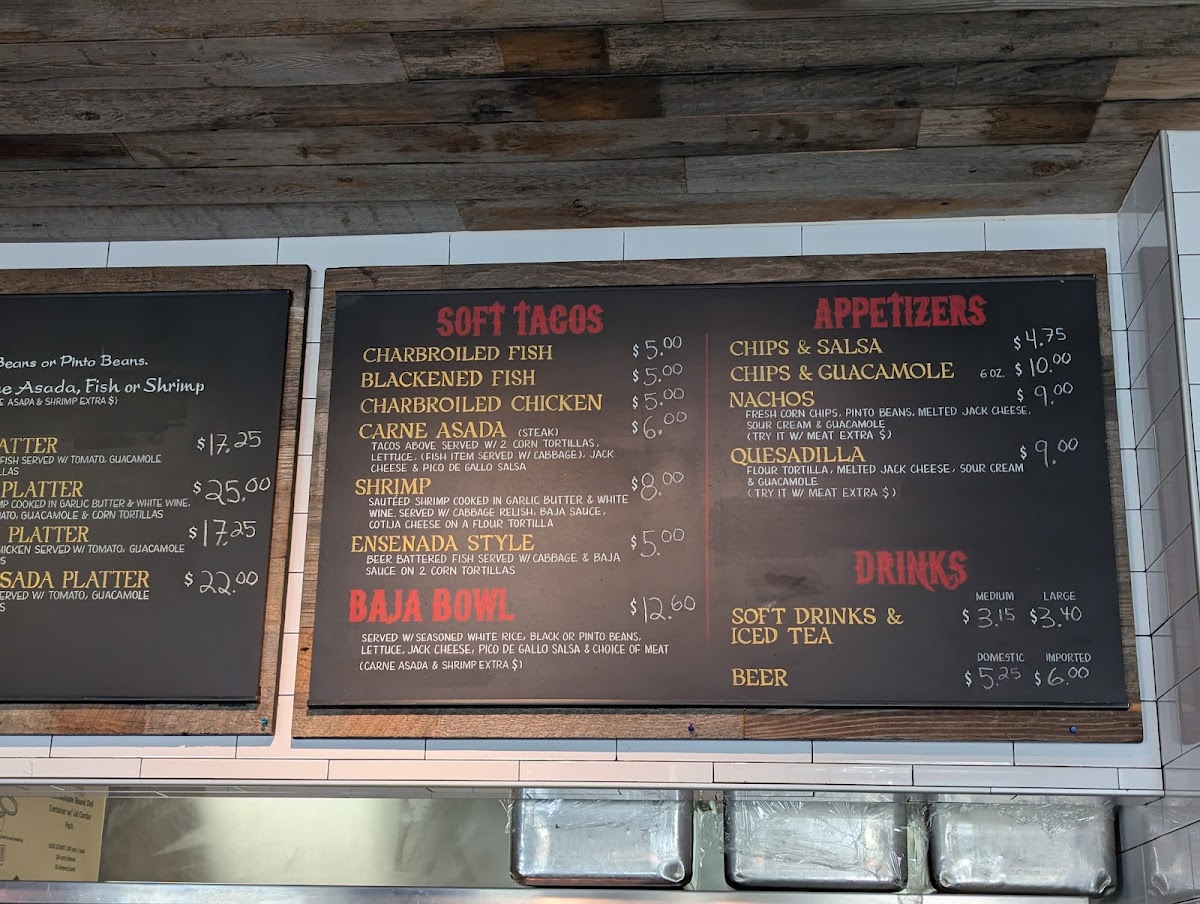 Beans or Pinto Beans.
Asada, Fish or Shrimp
ASADA & SHRIMP EXTRA $)
$17.25
FISH SERVED W/ TOMATO, GUACAMOLE
PLATTER $25.00
COOKED IN GARLIC BUTTER & WHITE WINE,
GUACAMOLE & CORN TORTILLAS
PLATTER $17.25
SERVED W/ TOMATO, GUACAMOLE
PLATTER $22.00
W/ TOMATO, GUACAMOLE
SOFT TACOS
CHARBROILED FISH $5.00
BLACKENED FISH $5.00
CHARBROILED CHICKEN $5.00
CARNE ASADA (STEAK) $6.00
TACOS ABOVE SERVED W/ 2 CORN TORTILLAS,
LETTUCE, (FISH ITEM SERVED W/ CABBAGE), JACK
CHEESE & PICO DE GALLO SALSA
SHRIMP $8.00
SAUTÉED SHRIMP COOKED IN GARLIC BUTTER & WHITE
WINE, SERVED W/ CABBAGE RELISH, BAJA SAUCE,
COTIJA CHEESE ON A FLOUR TORTILLA
ENSENADA STYLE $5.00
BEER BATTERED FISH SERVED W/ CABBAGE & BAJA
SAUCE ON 2 CORN TORTILLAS
BAJA BOWL $12.60
SERVED W/ SEASONED WHITE RICE, BLACK OR PINTO BEANS,
LETTUCE, JACK CHEESE, PICO DE GALLO SALSA & CHOICE OF MEAT
(CARNE ASADA & SHRIMP EXTRA $)
APPETIZERS
CHIPS & SALSA $4.75
CHIPS & GUACAMOLE 6 OZ. $10.00
NACHOS $9.00
FRESH CORN CHIPS, PINTO BEANS, MELTED JACK CHEESE,
SOUR CREAM & GUACAMOLE
(TRY IT W/ MEAT EXTRA $)
QUESADILLA $9.00
FLOUR TORTILLA, MELTED JACK CHEESE, SOUR CREAM
& GUACAMOLE
(TRY IT W/ MEAT EXTRA $)
DRINKS
MEDIUM LARGE
SOFT DRINKS & $3.15 $3.40
ICED TEA
DOMESTIC IMPORTED
BEER $5.25 $6.00
Round Deli
Container w/ Lid Combo
Pack